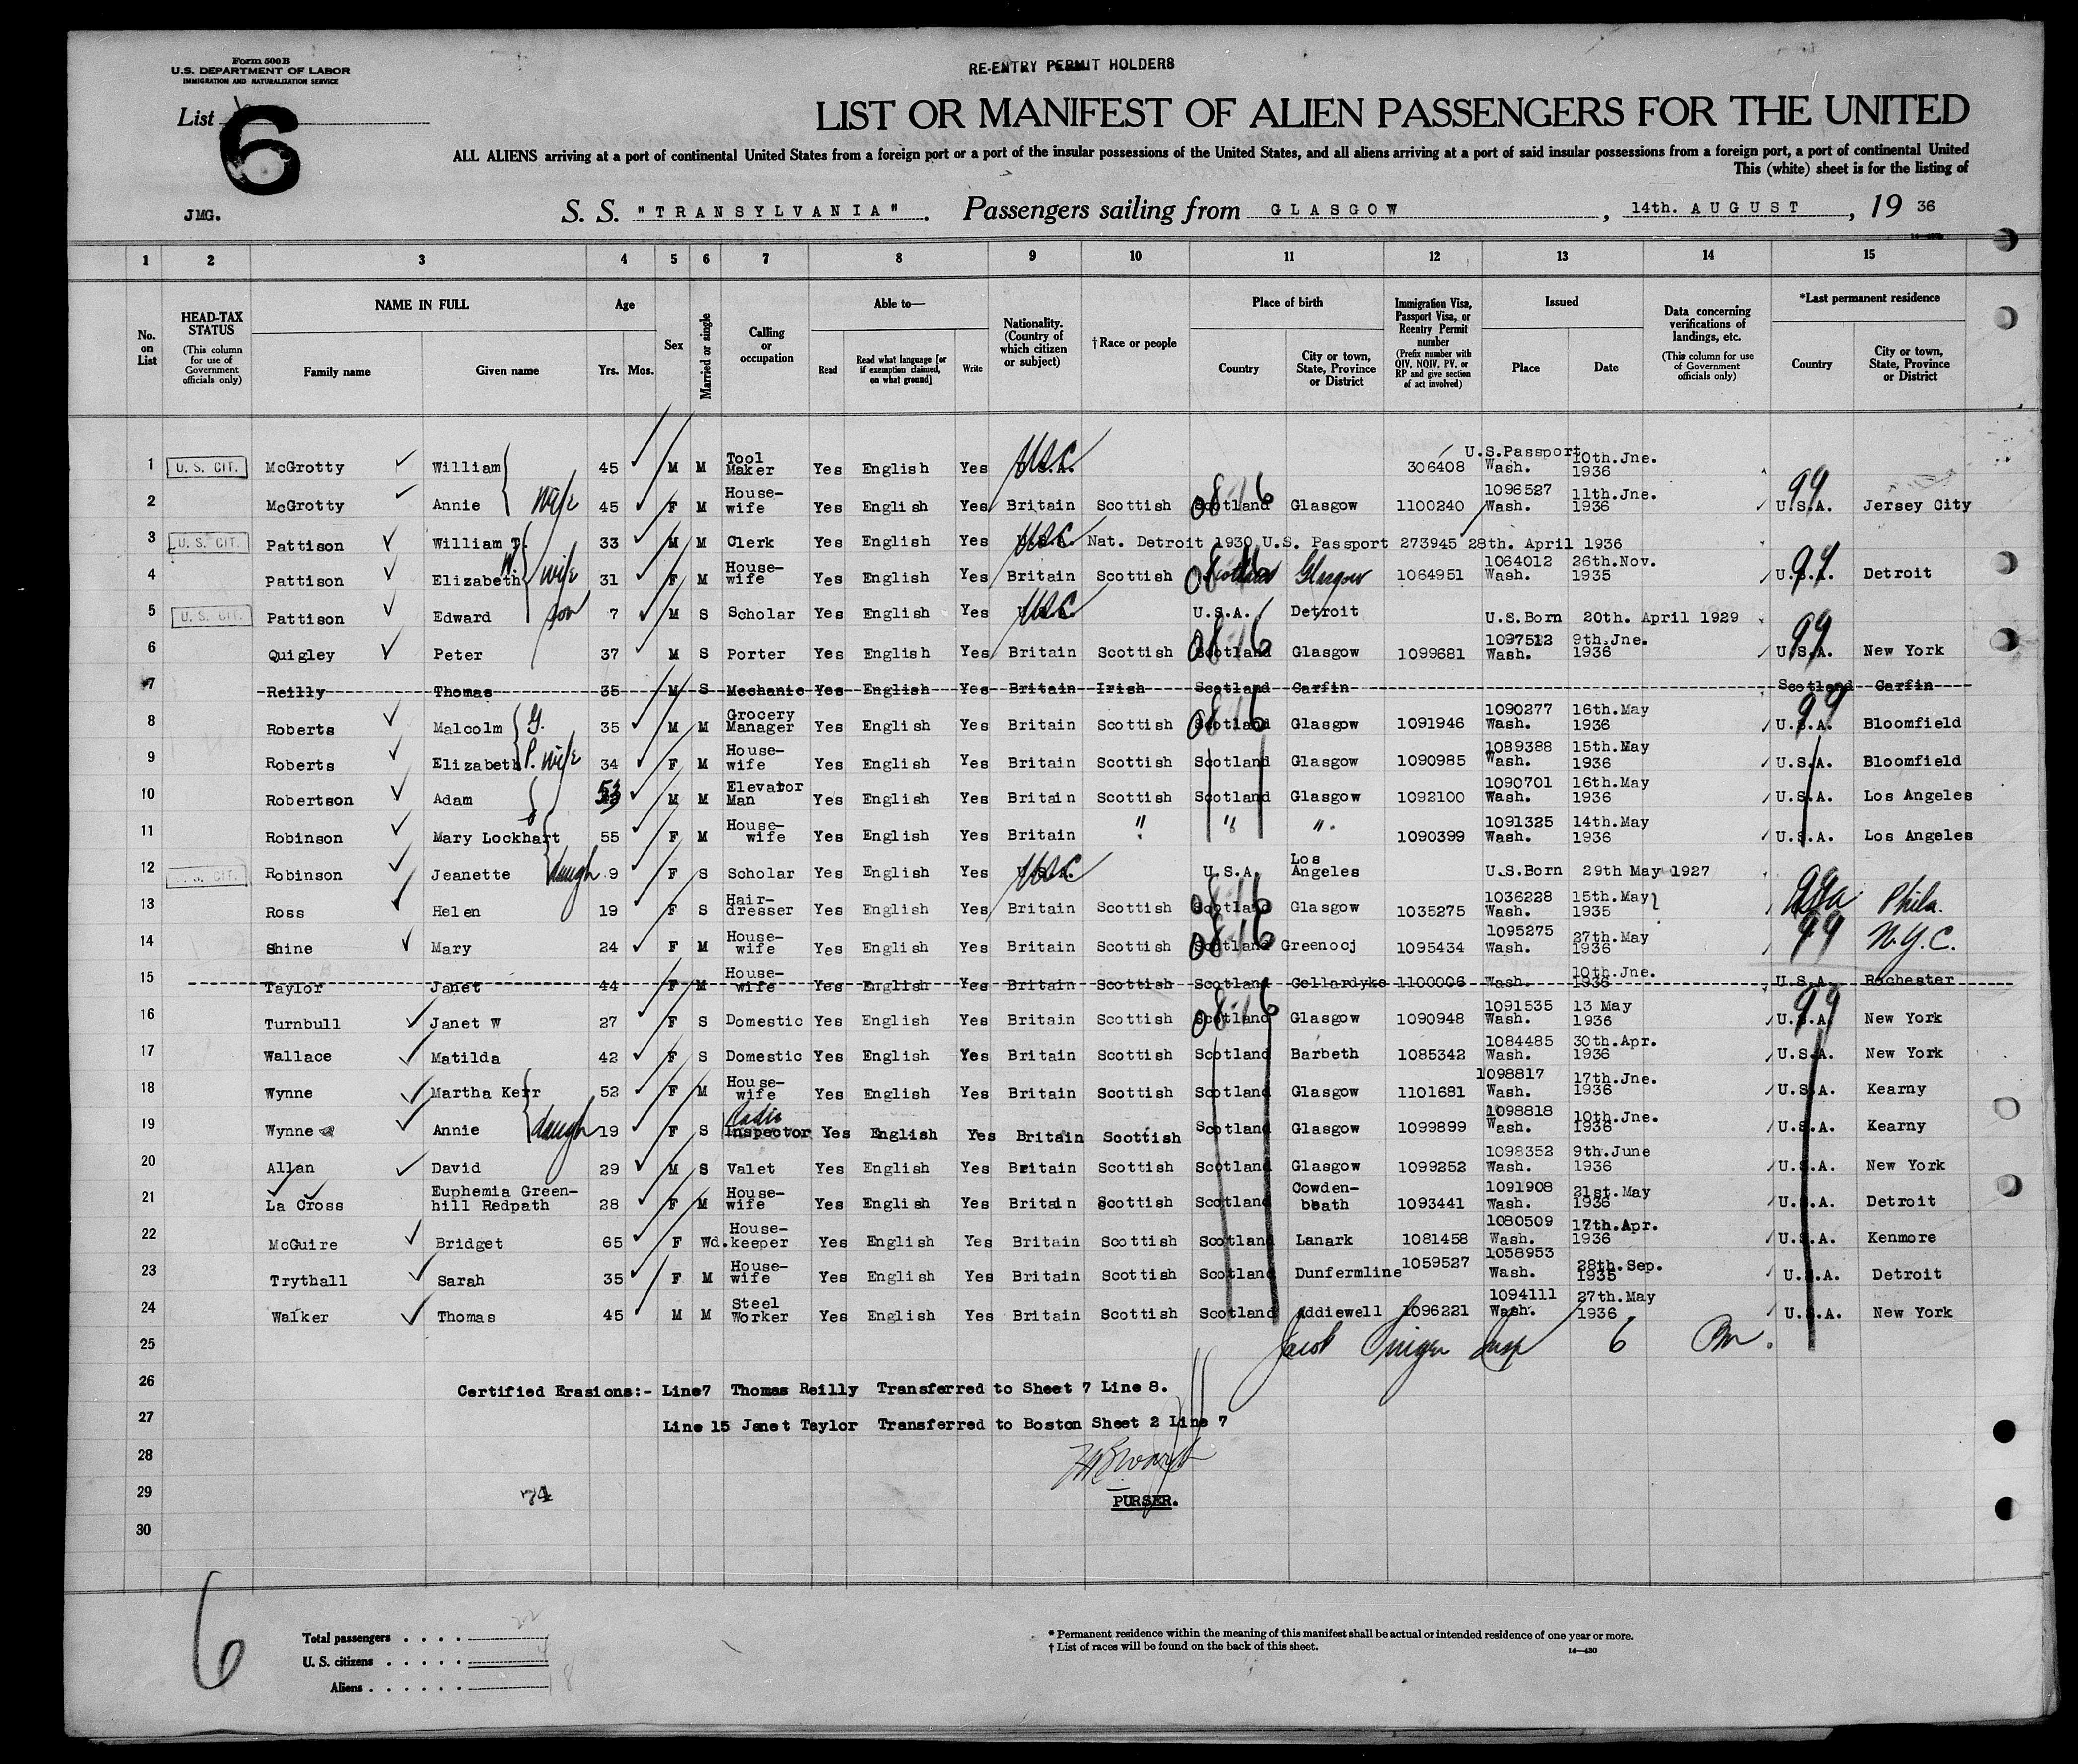 Form 500 B
U.S. DEPARTMENT OF LABOR
IMMIGRATION AND NATURALIZATION SERVICE
RE-ENTRY PERMIT HOLDERS
List 6
LIST OR MANIFEST OF ALIEN PASSENGERS FOR THE UNITED
ALL ALIENS arriving at a port of continental United States from a foreign port or a port of the insular possessions of the United States, and all aliens arriving at a port of said insular possessions from a foreign port, a port of continental United
This (white) sheet is for the listing of
JMG.
S. S. "TRANSYLVANIA". Passengers sailing from GLASGOW, 14th. AUGUST, 19 36
1 2 3 4 5 6 7 8 9 10 11 12 13 14 15
No. on List
HEAD-TAX STATUS (This column for use of Government officials only)
NAME IN FULL Family name Given name
Age Yrs. Mos.
Sex
Married or single
Calling or occupation
Able to— Read Read what language [or if exemption claimed, on what ground] Write
Nationality. (Country of which citizen or subject)
†Race or people
Place of birth Country City or town, State, Province or District
Immigration Visa, Passport Visa, or Reentry Permit number (Prefix number with QIV, NQIV, PV, or RP and give section of act involved)
Issued Place Date
Data concerning verifications of landings, etc. (This column for use of Government officials only)
*Last permanent residence Country City or town, State, Province or District
1 U. S. CIT. McGrotty William 45 M M Tool Maker Yes English Yes USC 306408 U.S.Passport Wash. 10th.Jne. 1936
2 McGrotty Annie wife 45 F M House-wife Yes English Yes Britain Scottish Scotland 0816 Glasgow 1100240 1096527 Wash. 11th.Jne. 1936 U.S.A. 99 Jersey City
3 U. S. CIT. Pattison William T. 33 M M Clerk Yes English Yes USC Nat. Detroit 1930 U.S. Passport 273945 28th. April 1936
4 Pattison Elizabeth W. wife 31 F M House-wife Yes English Yes Britain Scottish Scotland 0816 Glasgow 1064951 1064012 Wash. 26th.Nov. 1935 U.S.A. 99 Detroit
5 U. S. CIT. Pattison Edward son 7 M S Scholar Yes English Yes USC U.S.A. Detroit U.S.Born 20th. April 1929
6 Quigley Peter 37 M S Porter Yes English Yes Britain Scottish Scotland 0816 Glasgow 1099681 1097512 Wash. 9th.Jne. 1936 U.S.A. 99 New York
7 Reilly Thomas 35 M S Mechanic Yes English Yes Britain Irish Scotland Carfin Scotland Carfin
8 Roberts Malcolm G. 35 M M Grocery Manager Yes English Yes Britain Scottish Scotland 0816 Glasgow 1091946 1090277 Wash. 16th.May 1936 U.S.A. 99 Bloomfield
9 Roberts Elizabeth P. wife 34 F M House-wife Yes English Yes Britain Scottish Scotland Glasgow 1090985 1089388 Wash. 15th.May 1936 U.S.A. Bloomfield
10 Robertson Adam 53 M M Elevator Man Yes English Yes Britain Scottish Scotland Glasgow 1092100 1090701 Wash. 16th.May 1936 U.S.A. Los Angeles
11 Robinson Mary Lockhart 55 F M House-wife Yes English Yes Britain " " " 1090399 1091325 Wash. 14th.May 1936 U.S.A. Los Angeles
12 U. S. CIT. Robinson Jeanette daugh 9 F S Scholar Yes English Yes USC U.S.A. Los Angeles U.S.Born 29th May 1927
13 Ross Helen 19 F S Hair-dresser Yes English Yes Britain Scottish Scotland 0816 Glasgow 1035275 1036228 Wash. 15th.May 1935 USA Phila.
14 Shine Mary 24 F M House-wife Yes English Yes Britain Scottish Scotland 0816 Greenocj 1095434 1095275 Wash. 27th.May 1936 99 N.Y.C.
15 Taylor Janet 44 F M House-wife Yes English Yes Britain Scottish Scotland Cellardyke 1100006 Wash. 10th.Jne. 1936 U.S.A. Rochester
16 Turnbull Janet W 27 F S Domestic Yes English Yes Britain Scottish Scotland 0816 Glasgow 1090948 1091535 Wash. 13 May 1936 U.S.A. 99 New York
17 Wallace Matilda 42 F S Domestic Yes English Yes Britain Scottish Scotland Barbeth 1085342 1084485 Wash. 30th.Apr. 1936 U.S.A. New York
18 Wynne Martha Kerr 52 F M House-wife Yes English Yes Britain Scottish Scotland Glasgow 1101681 1098817 Wash. 17th.Jne. 1936 U.S.A. Kearny
19 Wynne Annie daugh 19 F S Radio Inspector Yes English Yes Britain Scottish Scotland Glasgow 1099899 1098818 Wash. 10th.Jne. 1936 U.S.A. Kearny
20 Allan David 29 M S Valet Yes English Yes Britain Scottish Scotland Glasgow 1099252 1098352 Wash. 9th.June 1936 U.S.A. New York
21 La Cross Euphemia Green-hill Redpath 28 F M House-wife Yes English Yes Britain Scottish Scotland Cowden-beath 1093441 1091908 Wash. 21st.May 1936 U.S.A. Detroit
22 McGuire Bridget 65 F Wd. House-keeper Yes English Yes Britain Scottish Scotland Lanark 1081458 1080509 Wash. 17th.Apr. 1936 U.S.A. Kenmore
23 Trythall Sarah 35 F M House-wife Yes English Yes Britain Scottish Scotland Dunfermline 1059527 1058953 Wash. 28th.Sep. 1935 U.S.A. Detroit
24 Walker Thomas 45 M M Steel Worker Yes English Yes Britain Scottish Scotland Addiewell 1096221 1094111 Wash. 27th.May 1936 U.S.A. New York
25 Jacob Insp 6
26 Certified Erasions:- Line7 Thomas Reilly Transferred to Sheet 7 Line 8.
27 Line 15 Janet Taylor Transferred to Boston Sheet 2 Line 7
28
29 74 PURSER.
30
6
Total passengers . . . . 22
U. S. citizens . . . . . 4
Aliens . . . . . . 18
* Permanent residence within the meaning of this manifest shall be actual or intended residence of one year or more.
† List of races will be found on the back of this sheet.
14—430